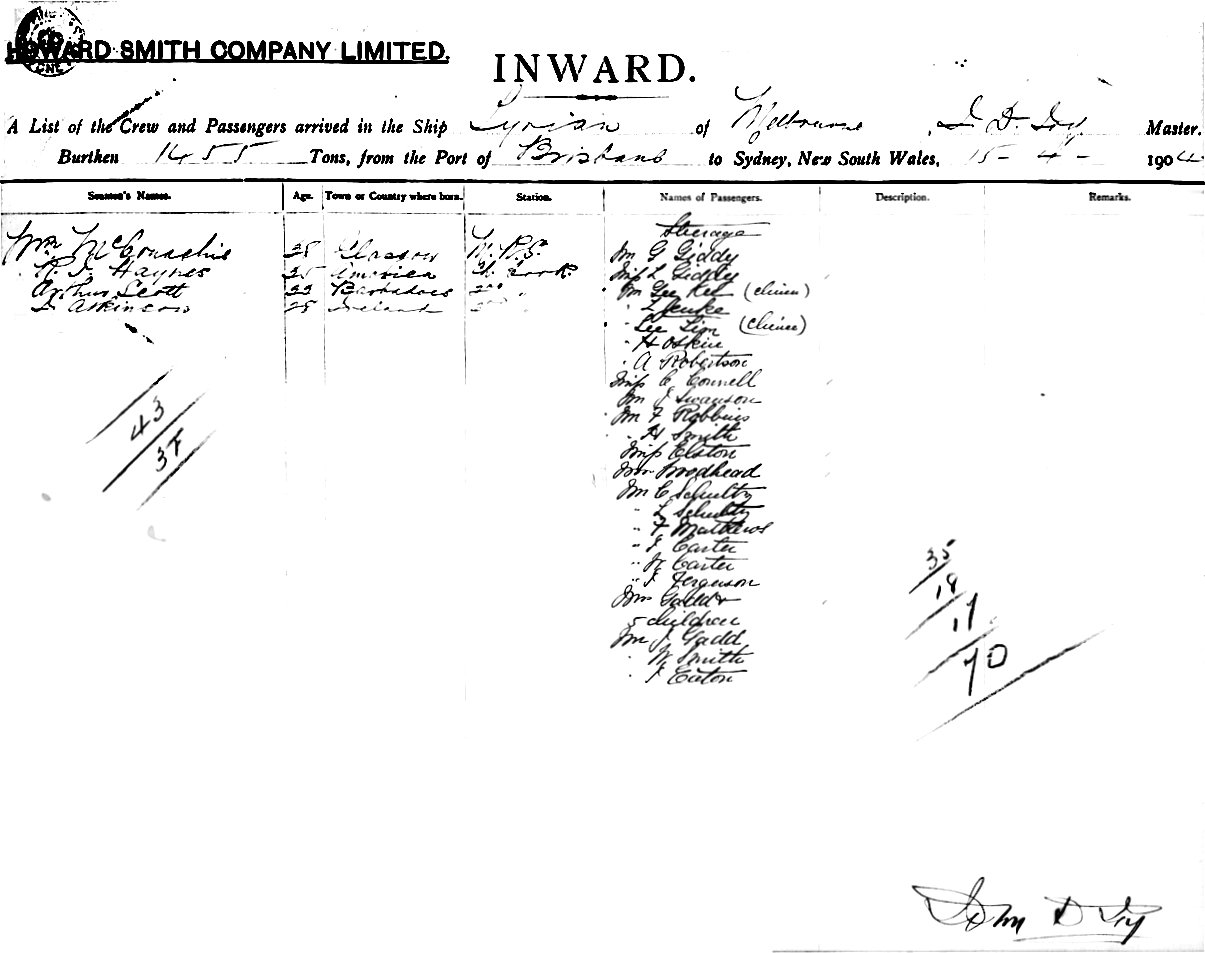 HOWARD SMITH COMPANY LIMITED.
INWARD.
A List of the Crew and Passengers arrived in the Ship Tyrian of Melbourne, J. D. Joy Master.
Burthen 1455 Tons, from the Port of Brisbane to Sydney, New South Wales, 15-4-1904
Seamen's Names. Age. Town or Country where born. Station. Names of Passengers. Description. Remarks.
Steerage
Wm McConachie 25 Glasgow
Mr G Giddy
R. J. Haynes 35 America Ch Cook
Miss L Giddy
Arthur Scott 33 Barbadoes 2nd "
Mr Gee Kee (Chinese)
Atkinson 25 Ireland 2nd
" L Jenke
" Lee Lim (Chinese)
" H Oskin
" A Robertson
Miss C Connell
Mr J Swanson
Mr F Robbins
" H Smith
Miss Elston
Mrs Woodhead
Mr C Schultz
" L Schultz
" F Matthews
" J Carter
" W Carter
" J Ferguson
Mrs Gadd &
5 children
Mr J Gadd
" W Smith
" J Eaton
43
37
35
18
17
70
John D Joy